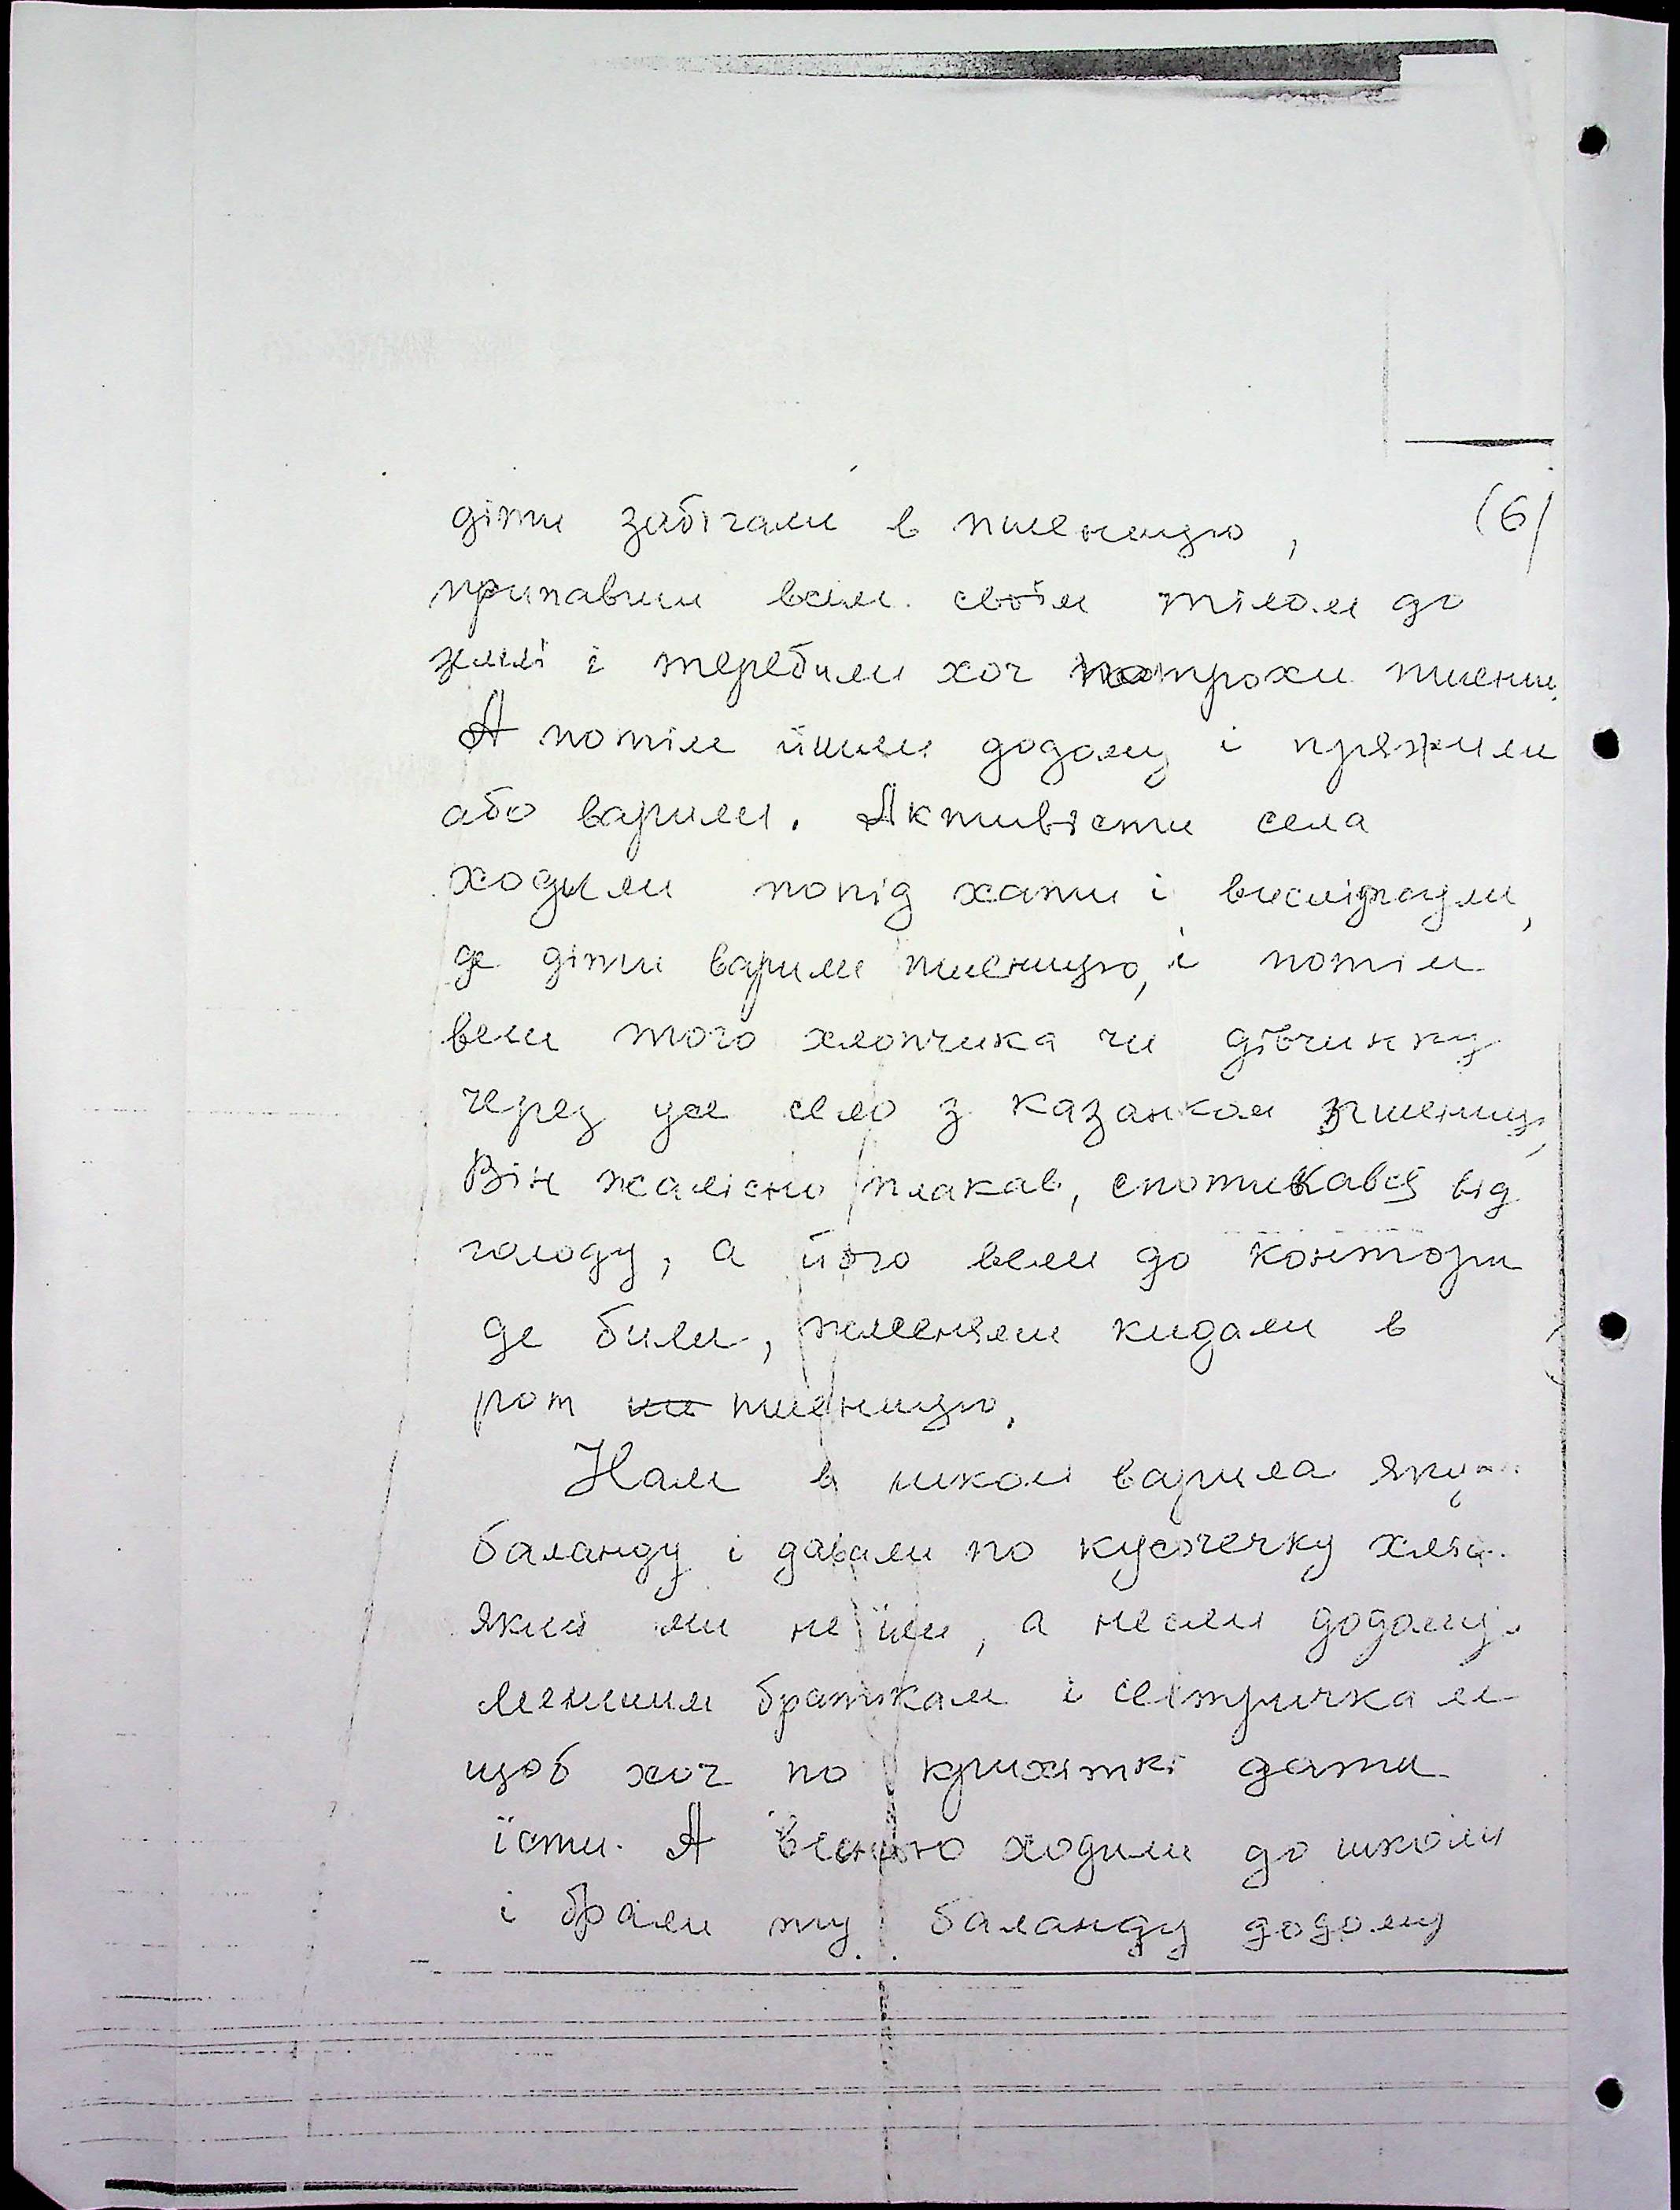 (6)
діти забігали в пшеницю,
припавши всім своїм тілом до
землі і теребили хоч потрохи пшениц
А потім йшли додому і пряжили
або варили. Активісти села
ходили попід хати і вислідкували,
де діти варили пшеницю, і потім
вели того хлопчика чи дівчинку
через усе село з казанком пшениці,
Він жалісно плакав, спотикався від
голоду, а його вели до контори
де били, жменями кидали в
рот пшеницю.
Нам в школі варила яку
баланду і давали по кусочечку хліба
який ми не їли, а несли додому
меншим братікам і сестричкам
щоб хоч по крихіткі дати
їсти. А весною ходили до школи
і брали ту баланду додому